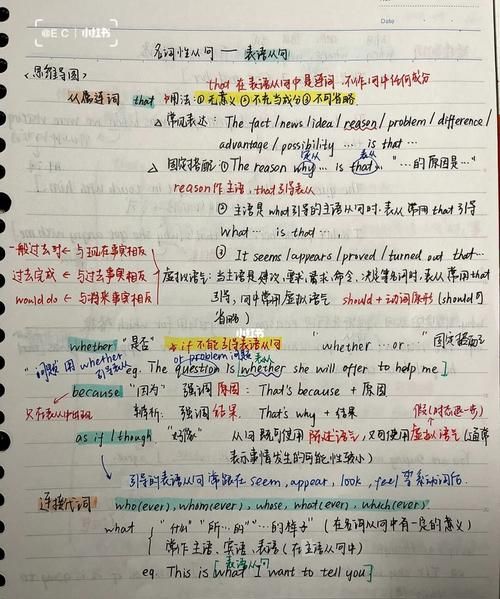 EC | 小红书
No.
Date
名词性从句 — 表语从句
<思维导图>
that 在表语从句中是连词,不作句中任何成分
从属连词 that 用法:①无意义②不充当成分③不可省略
△ 常见表达:The fact/news/idea/reason/problem/difference/
advantage/possibility … is that …
△ 固定搭配:① The reason why … is that … "…的原因是…"
定从 表从
reason作主语,that引导表从
② 主语是what引导的主语从句时,表从常用that引导
what … is that …
③ It seems/appears/proved/turned out that…
一般过去时 ← 与现在事实相反
过去完成 ← 与过去事实相反
would do ← 与将来事实相反
虚拟语气:当主语是建议、要求、命令、决定等名词时,表从常用that
引导,句中常用虚拟语气 should + 动词原形(should可
省略)
小红书
whether "是否" * if 不能引导表语从句 "whether … or …" 固定搭配
"问题"用whether
引导表从
or problem 问题 表从
eg. The question is [whether she will offer to help me]
because "因为" 强调原因:That's because + 原因
只在表从中出现
辨析:强调结果,That's why + 结果
假(时态退一步)
as if / though "好像" 从句既可使用陈述语气,又可使用虚拟语气(通常
表示事情发生的可能性较小)
引导的表语从句常跟在seem, appear, look, feel等系动词后.
连接代词 who(ever), whom(ever), whose, what(ever), which(ever)
what "什么" "所…的" "…的样子" (在名词从句中有一定的意义)
常作主语、宾语、表语(在主语从句中)
表语从句
eg. This is [what I want to tell you]